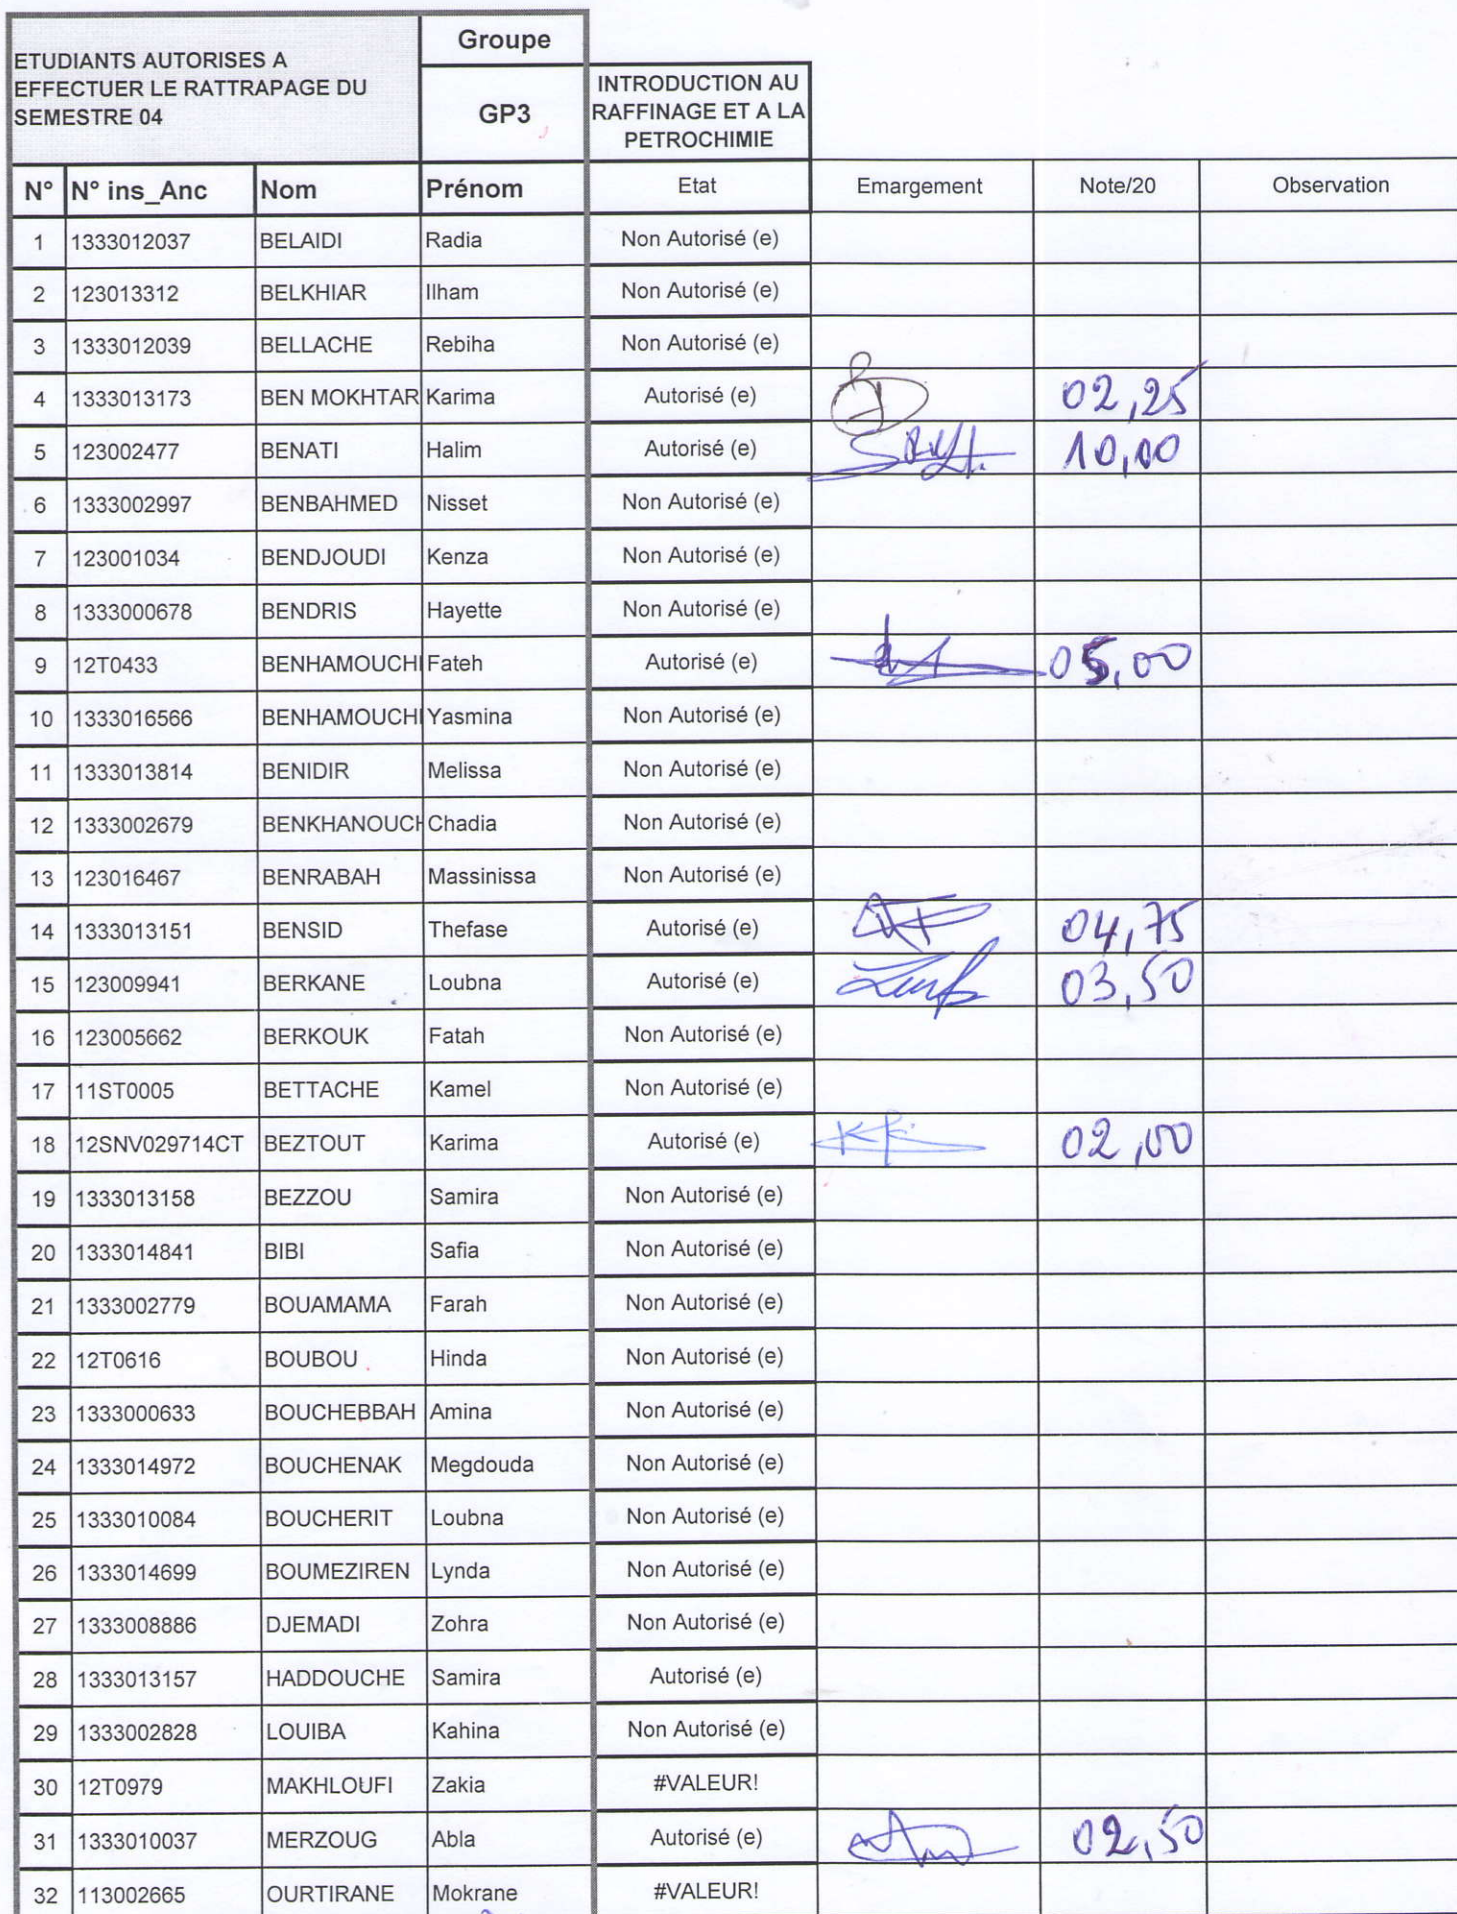 ETUDIANTS AUTORISES A
EFFECTUER LE RATTRAPAGE DU
SEMESTRE 04
Groupe
GP3
INTRODUCTION AU
RAFFINAGE ET A LA
PETROCHIMIE
N° N° ins_Anc Nom Prénom Etat Emargement Note/20 Observation
1 1333012037 BELAIDI Radia Non Autorisé (e)
2 123013312 BELKHIAR Ilham Non Autorisé (e)
3 1333012039 BELLACHE Rebiha Non Autorisé (e)
4 1333013173 BEN MOKHTAR Karima Autorisé (e) 02,25
5 123002477 BENATI Halim Autorisé (e) 10,00
6 1333002997 BENBAHMED Nisset Non Autorisé (e)
7 123001034 BENDJOUDI Kenza Non Autorisé (e)
8 1333000678 BENDRIS Hayette Non Autorisé (e)
9 12T0433 BENHAMOUCH Fateh Autorisé (e) 05,00
10 1333016566 BENHAMOUCH Yasmina Non Autorisé (e)
11 1333013814 BENIDIR Melissa Non Autorisé (e)
12 1333002679 BENKHANOUCH Chadia Non Autorisé (e)
13 123016467 BENRABAH Massinissa Non Autorisé (e)
14 1333013151 BENSID Thefase Autorisé (e) 04,75
15 123009941 BERKANE Loubna Autorisé (e) 03,50
16 123005662 BERKOUK Fatah Non Autorisé (e)
17 11ST0005 BETTACHE Kamel Non Autorisé (e)
18 12SNV029714CT BEZTOUT Karima Autorisé (e) 02,00
19 1333013158 BEZZOU Samira Non Autorisé (e)
20 1333014841 BIBI Safia Non Autorisé (e)
21 1333002779 BOUAMAMA Farah Non Autorisé (e)
22 12T0616 BOUBOU Hinda Non Autorisé (e)
23 1333000633 BOUCHEBBAH Amina Non Autorisé (e)
24 1333014972 BOUCHENAK Megdouda Non Autorisé (e)
25 1333010084 BOUCHERIT Loubna Non Autorisé (e)
26 1333014699 BOUMEZIREN Lynda Non Autorisé (e)
27 1333008886 DJEMADI Zohra Non Autorisé (e)
28 1333013157 HADDOUCHE Samira Autorisé (e)
29 1333002828 LOUIBA Kahina Non Autorisé (e)
30 12T0979 MAKHLOUFI Zakia #VALEUR!
31 1333010037 MERZOUG Abla Autorisé (e) 02,50
32 113002665 OURTIRANE Mokrane #VALEUR!